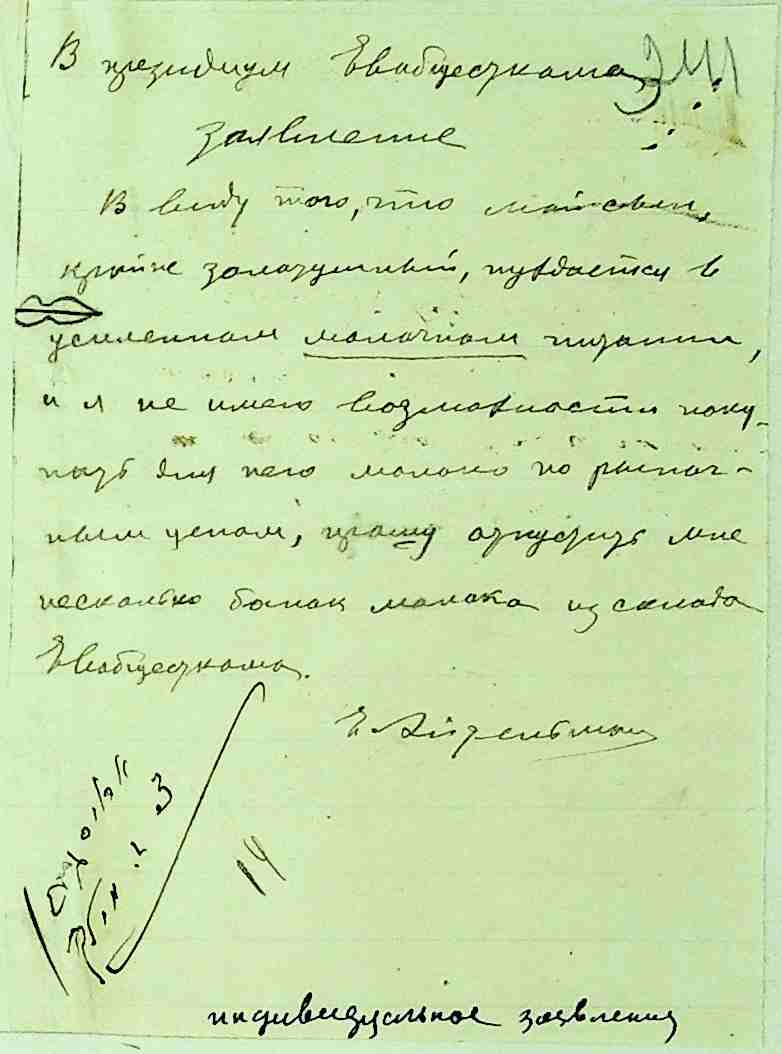 В президиум Евобщесткома
заявление
В виду того, что мой сын,
крайне золотушный, нуждается в
усиленном молочном питании,
и я не имею возможности поку-
пать для него молоко по рыноч-
ным ценам, прошу отпустить мне
несколько банок молока из склада
Евобщесткома.
Е.
3
14
индивидуальное заявления